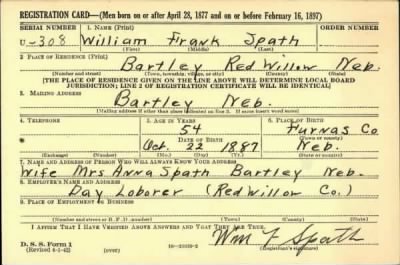 REGISTRATION CARD—(Men born on or after April 28, 1877 and on or before February 16, 1897)
SERIAL NUMBER 1. NAME (Print)
U-308 William Frank Spath
(First) (Middle) (Last)
2. PLACE OF RESIDENCE (Print)
Bartley Red Willow Neb.
(Number and street) (Town, township, village, or city) (County) (State)
[THE PLACE OF RESIDENCE GIVEN ON THE LINE ABOVE WILL DETERMINE LOCAL BOARD
JURISDICTION; LINE 2 OF REGISTRATION CERTIFICATE WILL BE IDENTICAL]
3. MAILING ADDRESS
Bartley Neb.
[Mailing address if other than place indicated on line 2. If same insert word same]
4. TELEPHONE 5. AGE IN YEARS 6. PLACE OF BIRTH
54 Furnas Co
DATE OF BIRTH (Town or county)
Oct. 22 1887 Neb.
(Exchange) (Number) (Mo.) (Day) (Yr.) (State or country)
7. NAME AND ADDRESS OF PERSON WHO WILL ALWAYS KNOW YOUR ADDRESS
Wife Mrs Anna Spath Bartley Neb.
8. EMPLOYER'S NAME AND ADDRESS
Day Loborer (Red Willow Co.)
9. PLACE OF EMPLOYMENT OR BUSINESS
(Number and street or R. F. D. number) (Town) (County) (State)
I AFFIRM THAT I HAVE VERIFIED ABOVE ANSWERS AND THAT THEY ARE TRUE.
D. S. S. Form 1 Wm F Spath
(Revised 4-1-42) (over) (Registrant's signature)